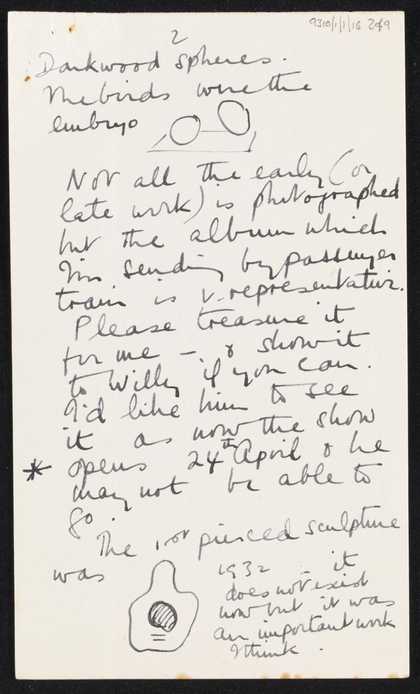 9310/1/1/16 2of9
2
Darkwood spheres.
The birds were the
embryo
Not all the early (or
late work) is photographed
but the album which
I'm sending by passenger
train is v. representative.
Please treasure it
for me – & show it
to Willy if you can.
I'd like him to see
it as now the show
* opens 24th April & he
may not be able to
go.
The 1st pierced sculpture
was
1932 – it
does not exist
now but it was
an important work
I think.